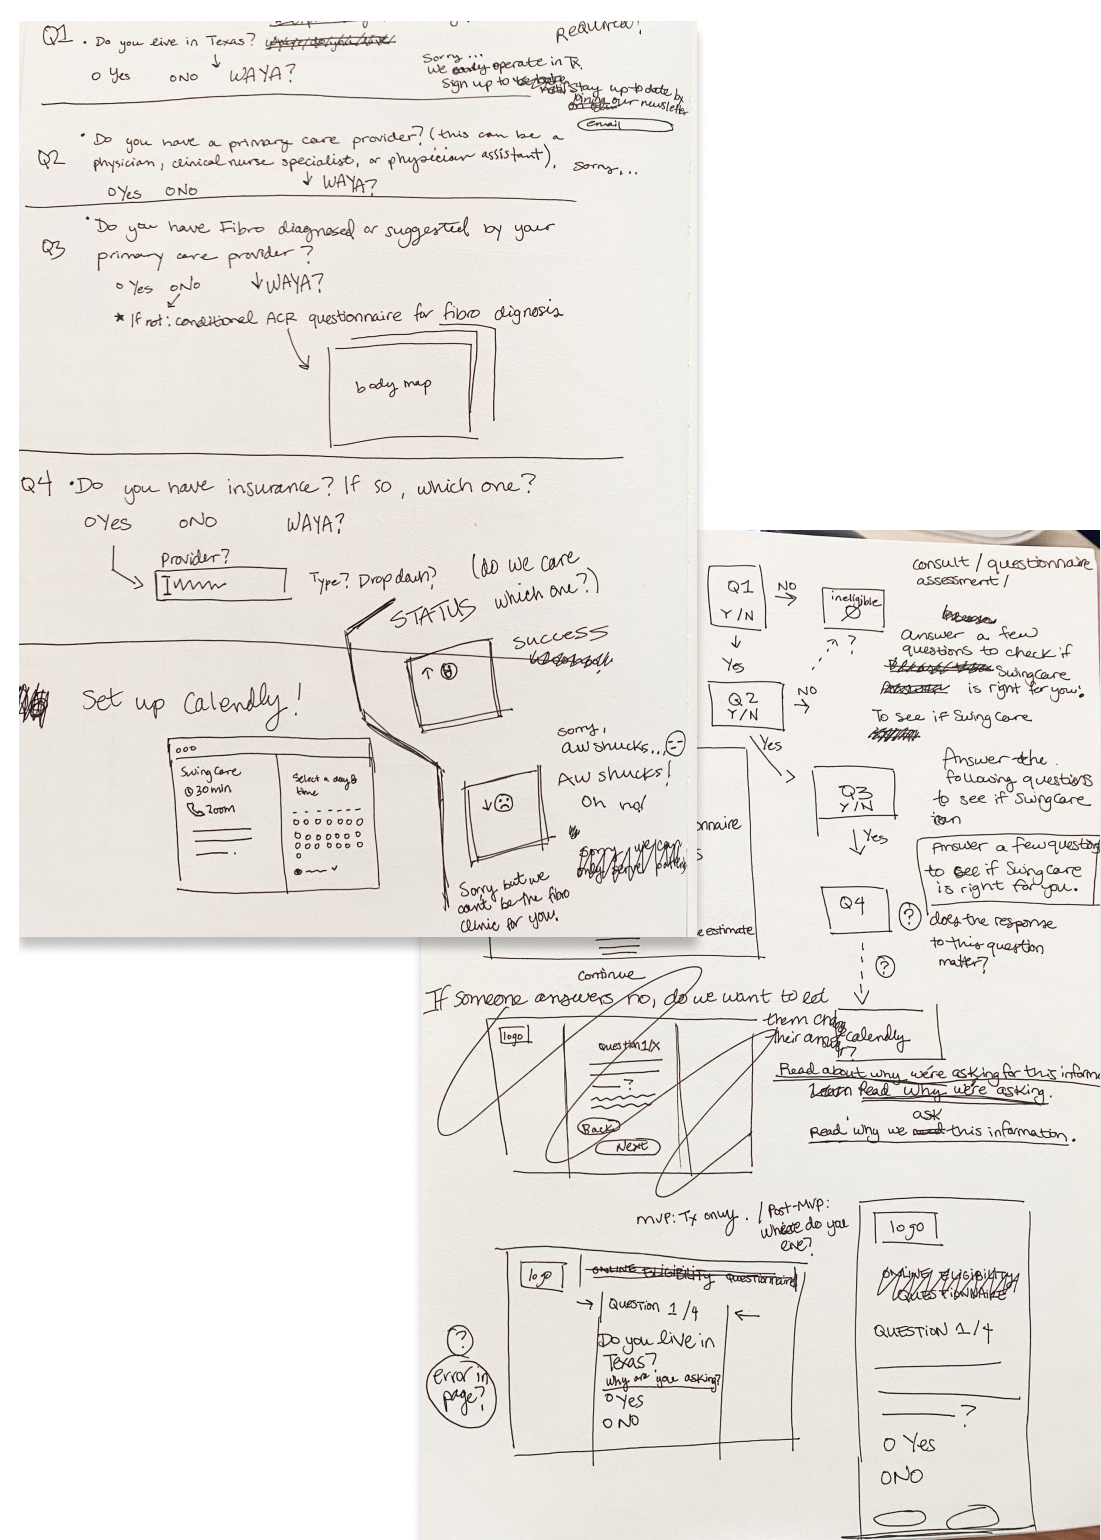 Q1 • Do you live in Texas?
REQUIRED!
o Yes oNO WAYA?
Sorry...
We operate in TX.
Sign up to stay up to date by
joining our newsletter
email
Q2 • Do you have a primary care provider? (this can be a
physician, clinical nurse specialist, or physician assistant).
sorry...
oYes oNo WAYA?
Q3 • Do you have Fibro diagnosed or suggested by your
primary care provider?
o Yes oNo WAYA?
* If not: conditional ACR questionnaire for fibro dignosis
body map
Q4 • Do you have insurance? If so, which one?
oYes oNO WAYA?
Provider?
Type? Dropdown? (do we care
which one?)
STATUS
success
Set up Calendly!
Swing Care
30 min
Zoom
Select a day &
time
sorry,
aw shucks...
Aw shucks!
Oh no!
Sorry but we
can't be the fibro
clinic for you.
consult / questionnaire
assessment /
Q1
Y/N
NO
ineligible
?
Yes
Q2
Y/N
NO
Yes
Q3
Y/N
Yes
Q4
?
?
calendly
answer a few
questions to check if
SwingCare
is right for you.
To see if SwingCare
Answer the
following questions
to see if SwingCare
Answer a few question
to see if SwingCare
is right for you.
does the response
to this question
matter?
nnaire
s
e estimate
continue
If someone answers no, do we want to let
them change
their answer?
logo
Question 1/X
?
Back
Next
Read about why we're asking for this inform
Learn Read why we're asking.
ask
Read why we this information.
MVP: TX only. / Post-MVP:
Where do you
live?
logo
ONLINE ELIGIBILITY questionnaire
QUESTION 1/4
Do you live in
Texas?
Why are you asking?
o Yes
o NO
?
error in
page?
logo
ONLINE ELIGIBILITY
QUESTIONNAIRE
QUESTION 1/4
?
o Yes
oNO